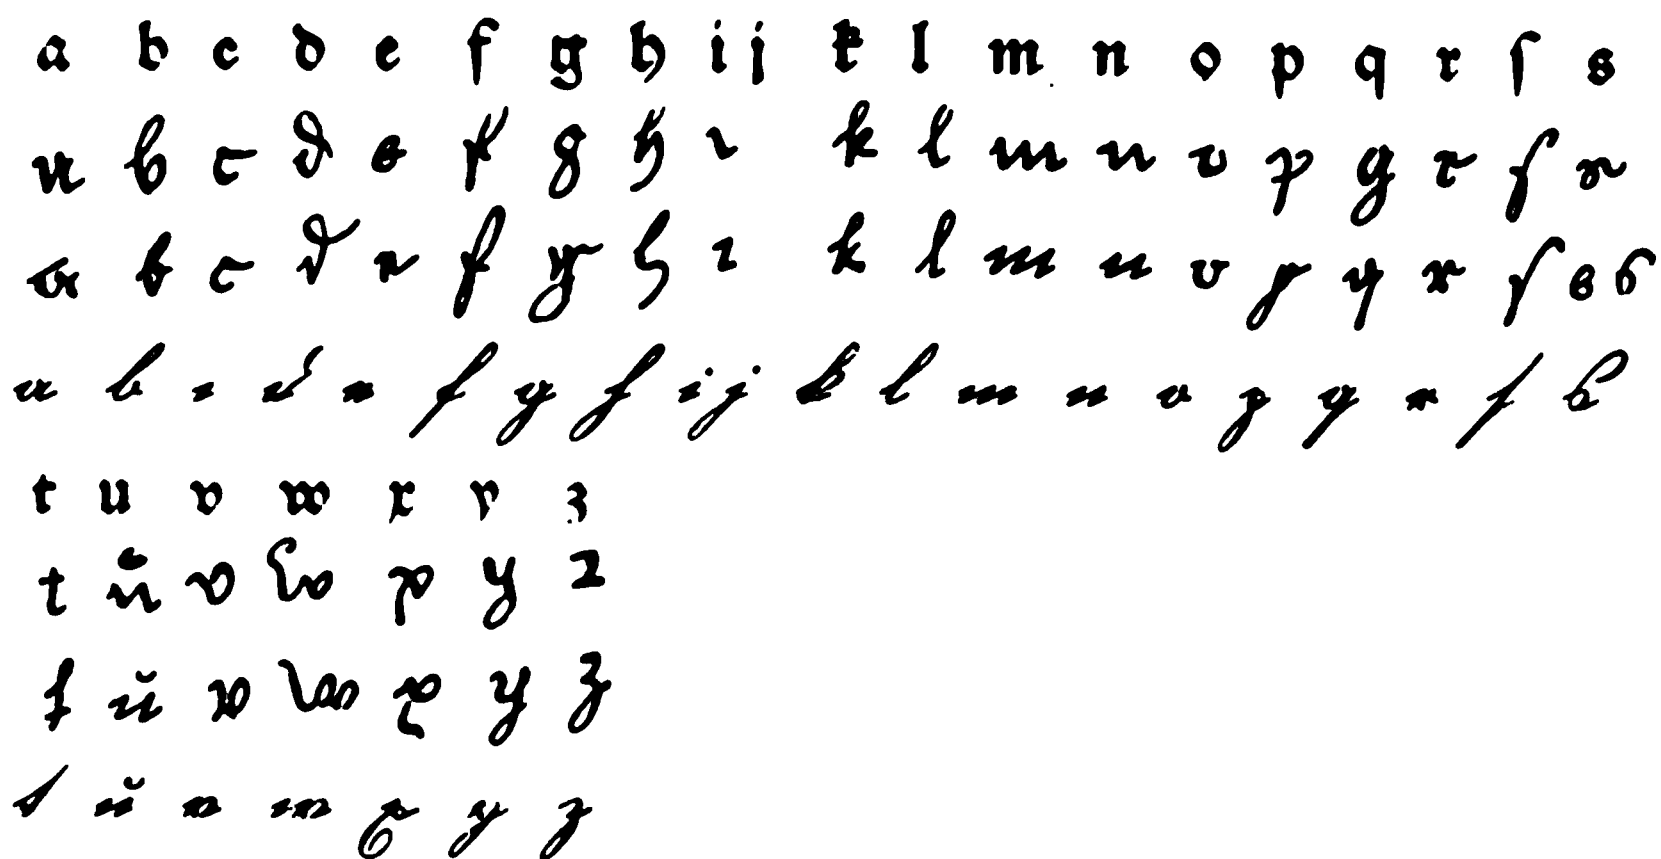 a b c d e f g h i j k l m n o p q r ſ s
a b c d e f g h i k l m n o p q r ſ s
a b c d e f g h i k l m n o p q r ſ s s
a b c d e f g h i j k l m n o p q r ſ s
t u v w x y z
t u v w x y z
t u v w x y z
t u v w x y z